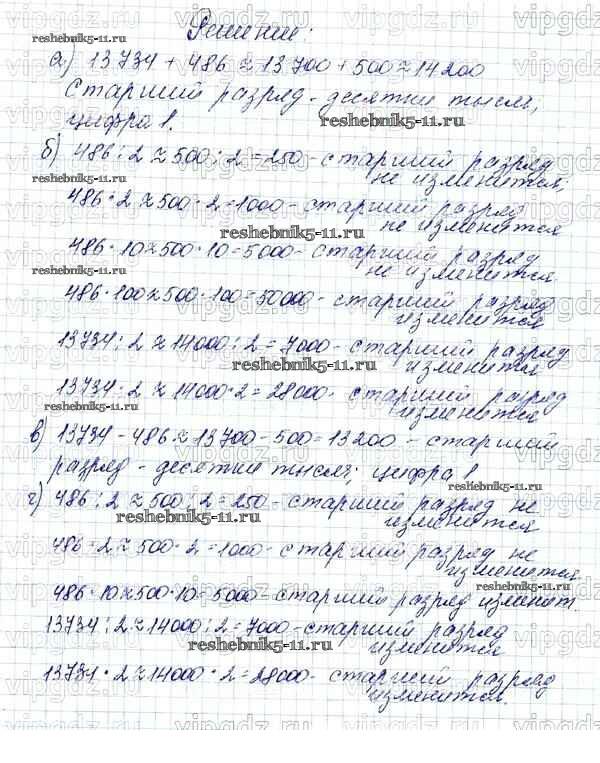 Решение:
а) 13734 + 486 ≈ 13700 + 500 ≈ 14200
старший разряд - десятки тысяч,
цифра 1.
б) 486 : 2 ≈ 500 : 2 = 250 - старший разряд
не изменится;
486 · 2 ≈ 500 · 2 = 1000 - старший разряд
не изменится
486 · 10 ≈ 500 · 10 = 5000 - старший разряд
не изменится
486 · 100 ≈ 500 · 100 = 50000 - старший разряд
изменится
13734 : 2 ≈ 14000 : 2 = 7000 - старший разряд
изменится
13734 · 2 ≈ 14000 · 2 = 28000 - старший разряд
изменится
в) 13734 - 486 ≈ 13700 - 500 = 13200 - старший
разряд - десятки тысяч; цифра 1
г) 486 : 2 ≈ 500 : 2 = 250 - старший разряд не
изменится
486 · 2 ≈ 500 · 2 = 1000 - старший разряд не
изменится.
486 · 10 ≈ 500 · 10 = 5000 - старший разряд изменит.
13734 : 2 ≈ 14000 : 2 = 7000 - старший разряд
изменится
13734 · 2 ≈ 14000 · 2 = 28000 - старший разряд
изменится.
reshebnik5-11.ru
reshebnik5-11.ru
reshebnik5-11.ru
reshebnik5-11.ru
reshebnik5-11.ru
reshebnik5-11.ru
reshebnik5-11.ru
reshebnik5-11.ru
reshebnik5-11.ru
reshebnik5-11.ru
reshebnik5-11.ru
vipgdz.ru